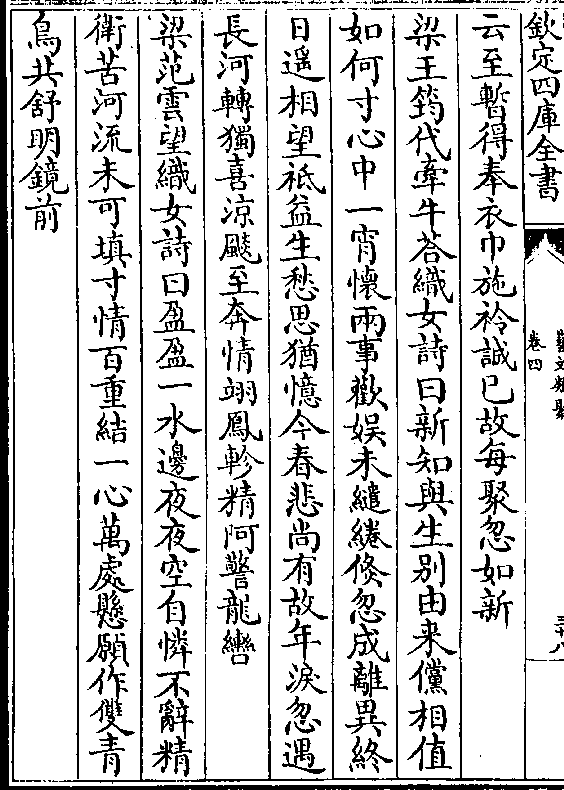 欽定四庫全書
藝文類聚
卷四
三十八
云至暫得奉衣巾施衿誠已故每聚忽如新
梁王筠代牽牛荅織女詩曰新知與生别由来儻相值
如何寸心中一宵懷兩事歡娱未繾綣倐忽成離異終
日遥相望祗益生愁思猶憶今春悲尚有故年淚忽遇
長河轉獨喜涼飈至奔情翊鳳軫精阿警龍轡
梁范雲望織女詩曰盈盈一水邊夜夜空自憐不辭精
衛苦河流未可填寸情百重結一心萬處懸願作雙青
鳥共舒明鏡前